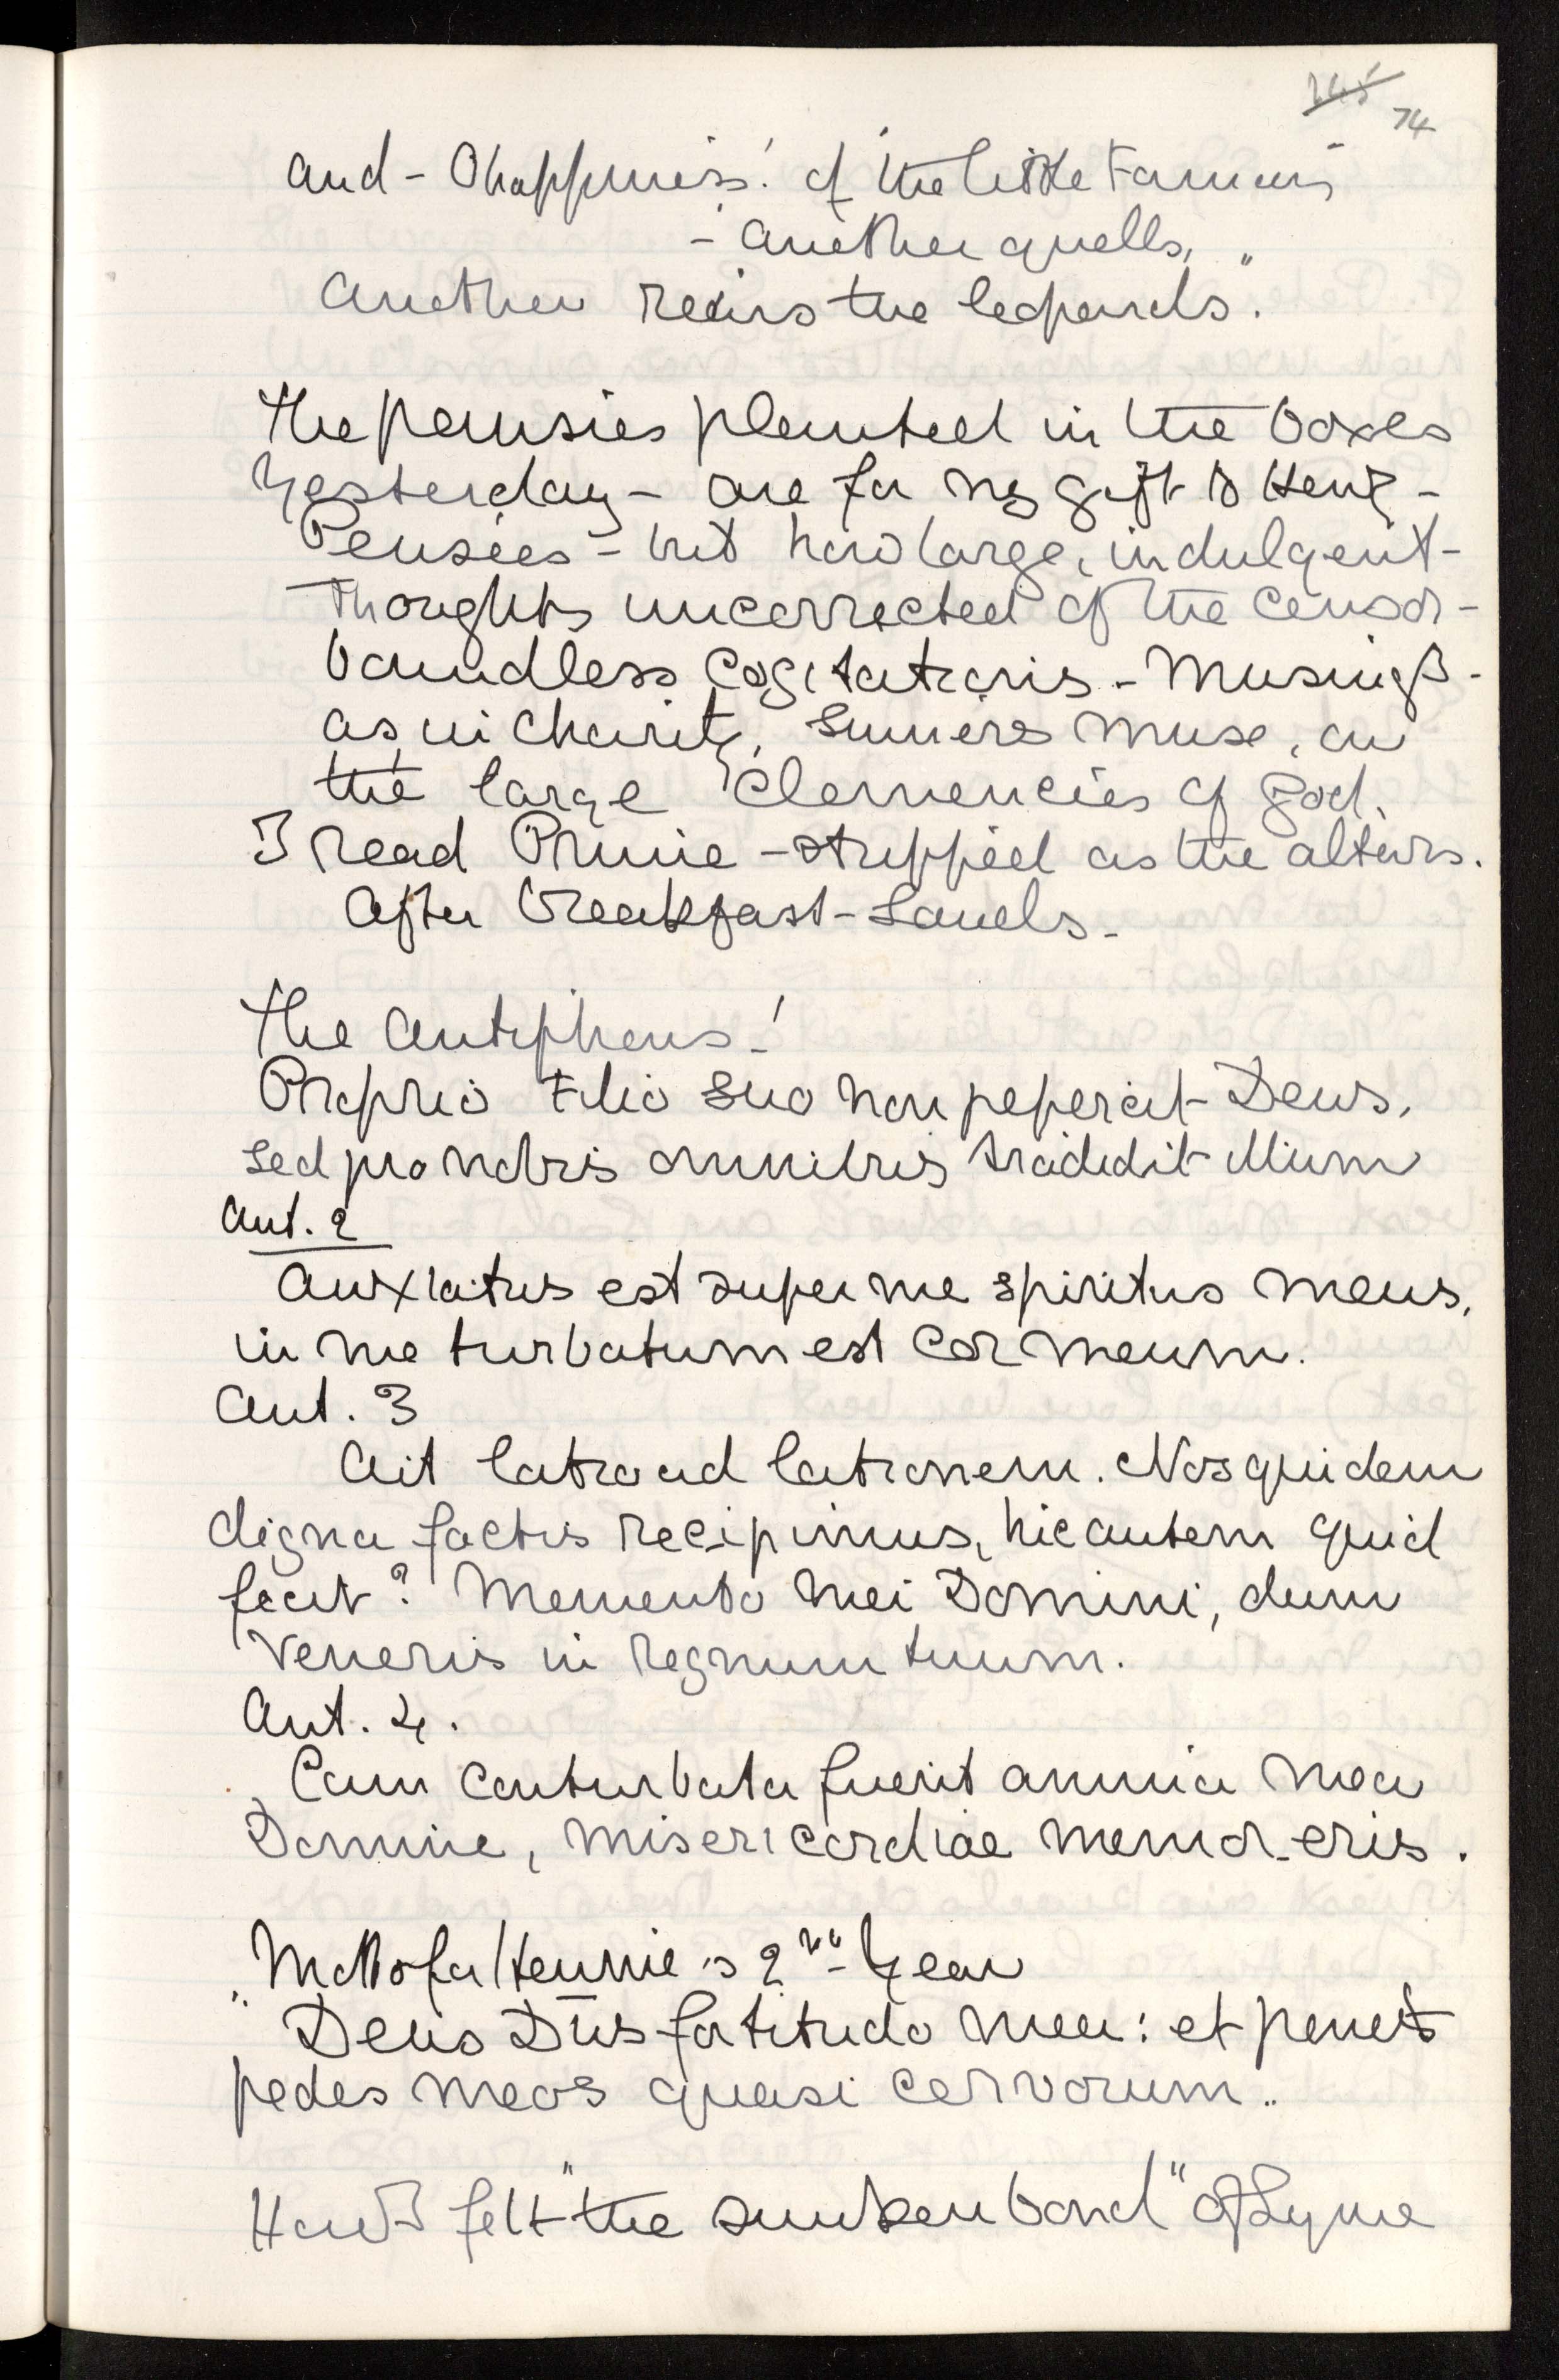 145 74
and - O happiness! of the little Fauns
- another quells, "
Another reins the leopards.
The pansies planted in the boxes
Yesterday - are for my gift to Henry -
Pensées - but how large, indulgent -
Thoughts uncorrected of the censor -
boundless cogitations - Musings -
as in charity, sinners muse, on
the large clemencies of God.
I read Prime - stripped as the altars.
After breakfast - Lauds -
The Antiphons!
Proprio Filio suo non pepercit Deus,
sed pro nobis omnibus tradidit illum
Ant. 2
Anxiatus est super me spiritus meus,
in me turbatum est cor meum.
Ant. 3
Ait latro ad latronem. Nos quidem
digna factis recipimus, hic autem quid
fecit? Memento mei Domini, dum
veneris in regnum tuum.
Ant. 4.
Cum conturbata fuerit anima mea
Domine, misericordiae memor eris.
Motto for Hennie's 2nd Year
"Deus Dns fortitudo mea: et ponet
pedes meos quasi cervorum."
How I felt "the sunken bond" of Lyme